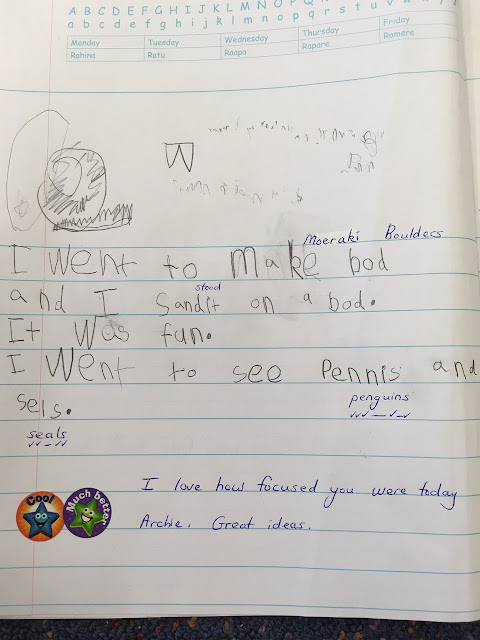 A B C D E F G H I J K L M N O P Q
a b c d e f g h i j k l m n o p q r s t u v w x y
Monday Tuesday Wednesday Thursday Friday
Rahina Ratu Raapa Rapare Ramere
Moeraki Boulders
I went to make bod
stood
and I Sandit on a bod.
It was fun.
I went to see Pennis and
sels.
penguins
seals
Cool
Much better
I love how focused you were today
Archie. Great ideas.